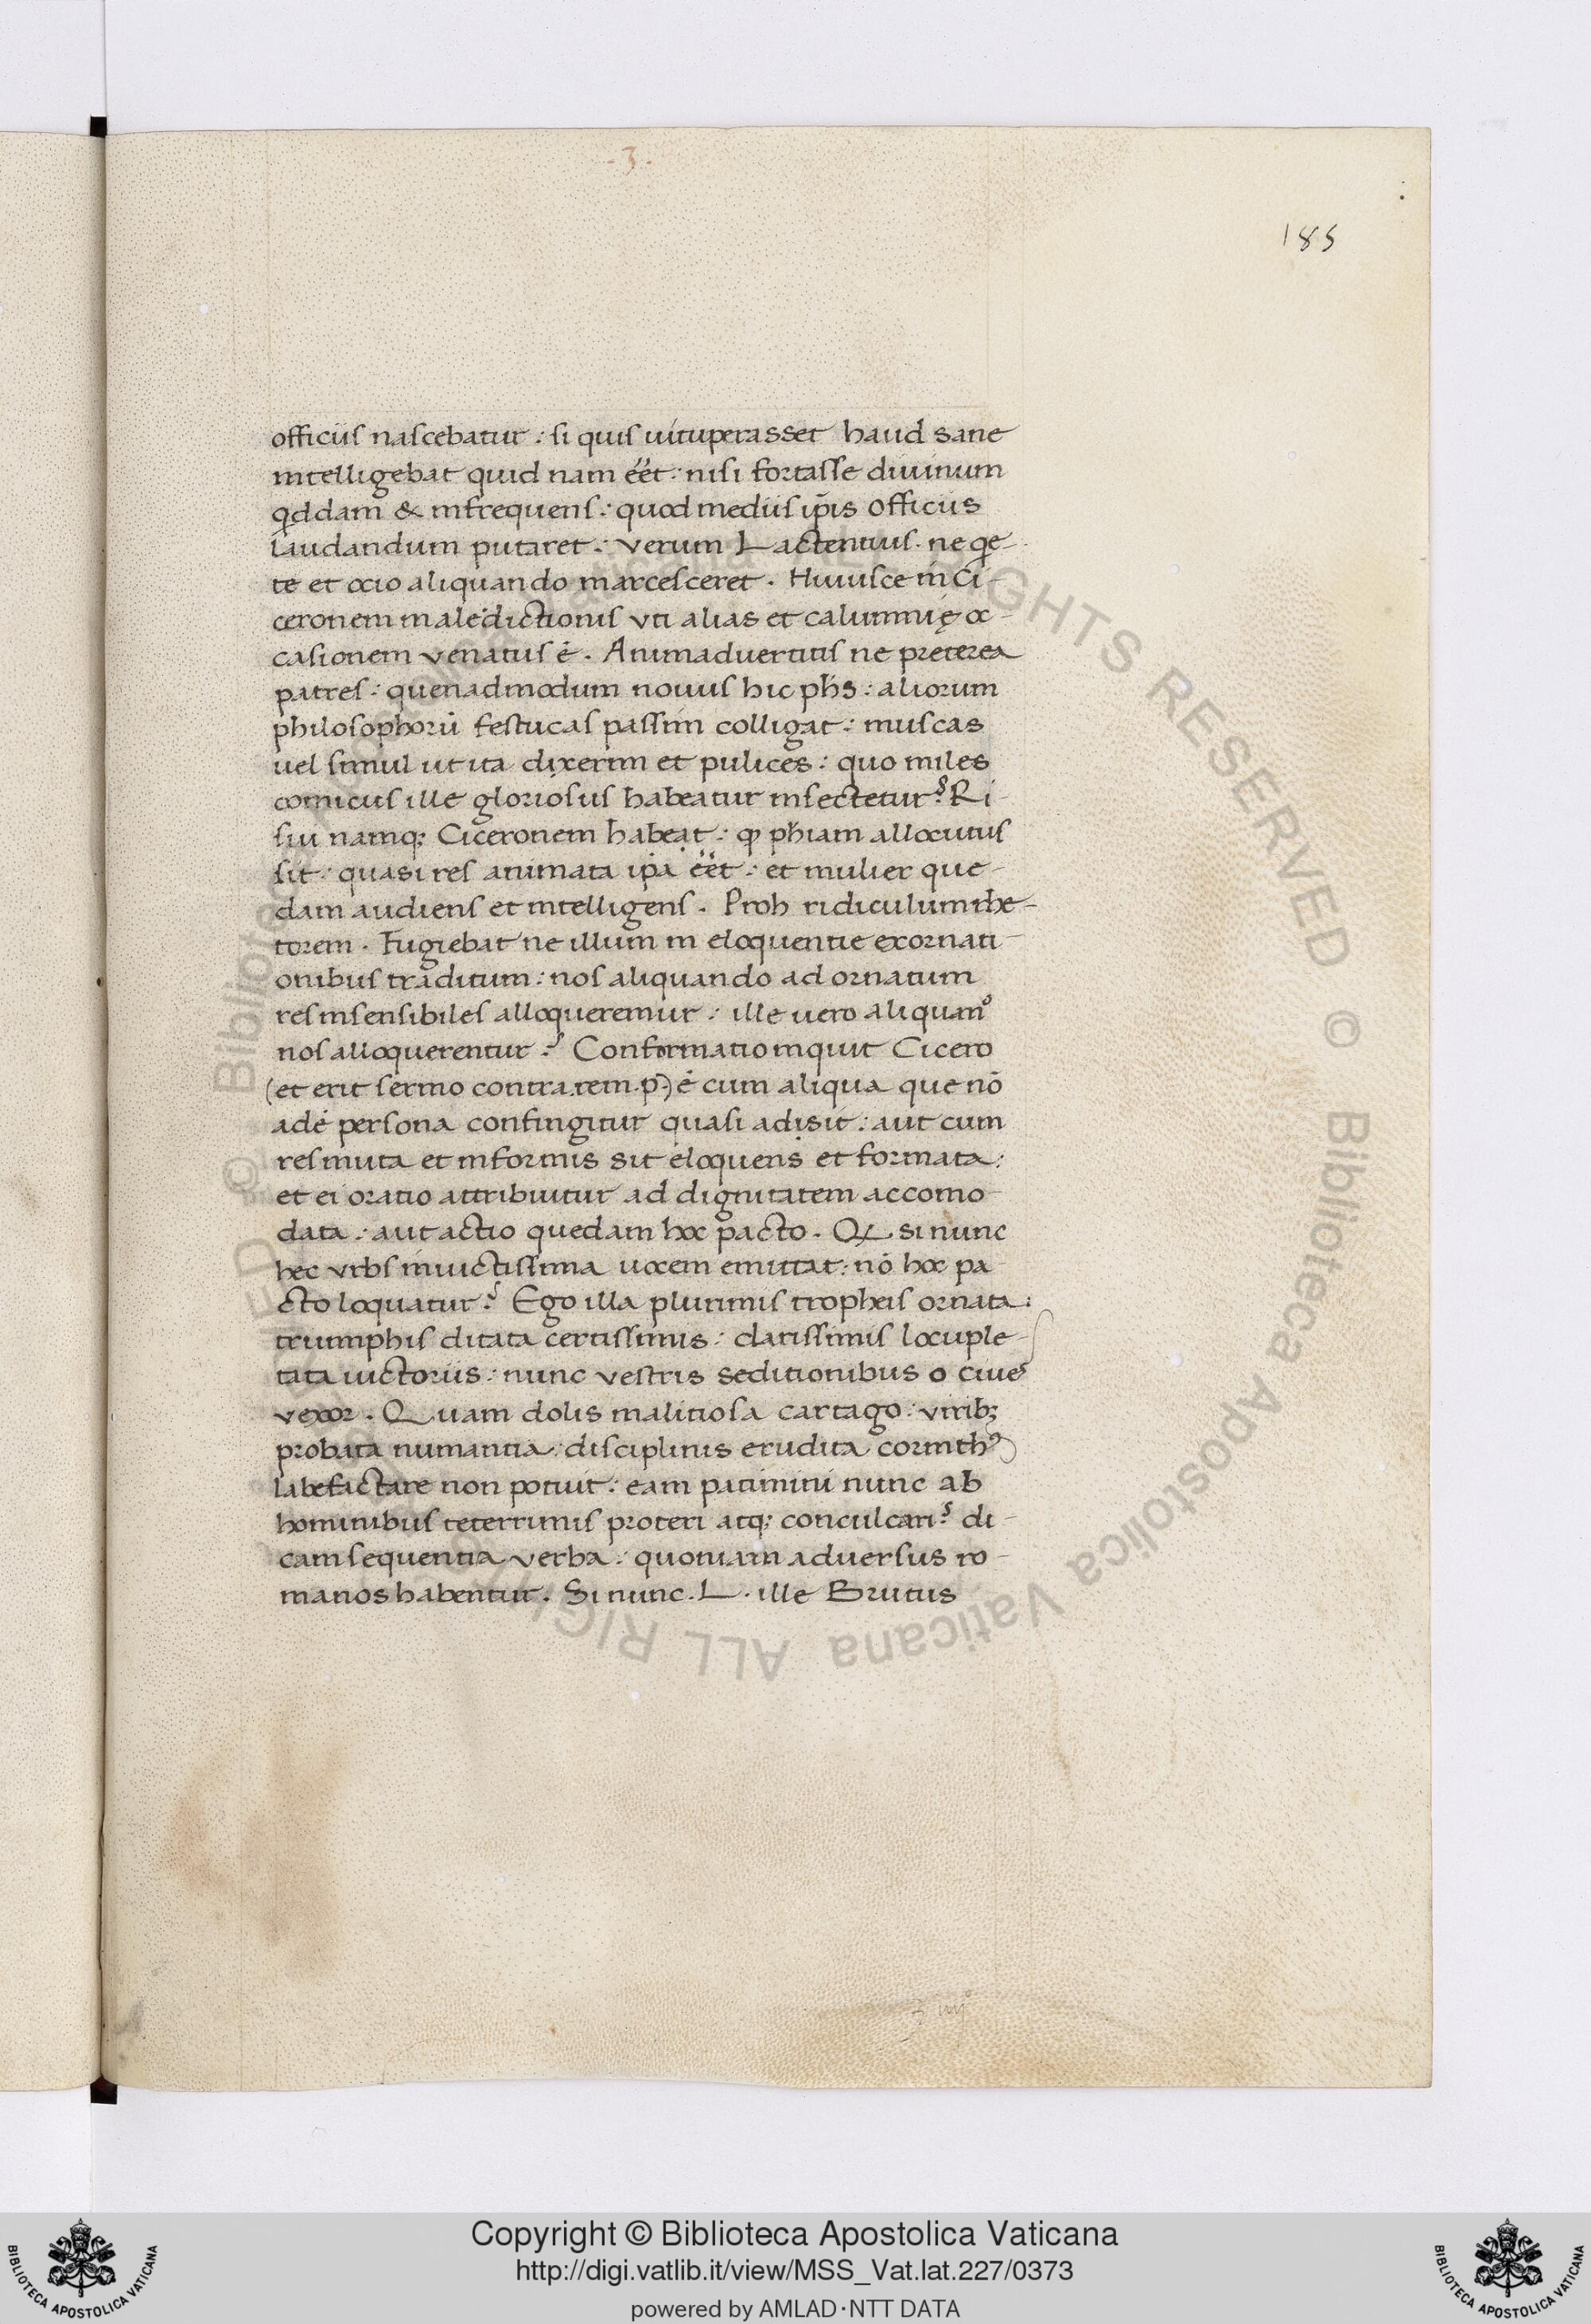 -3-
185
officiis nascebatur : si quis uituperasset haud sane
intelligebat quid nam eēt : nisi fortasse diuinum
qddam & infrequens : quod mediis ip̄is officiis
laudandum putaret : verum Lactentius . ne qe-
te et ocio aliquando marcesceret . Huiusce in Ci-
ceronem maledictionis vti alias et calumnię oc-
casionem venatus ē . Animaduertitis ne preterea
patres : quenadmodum nouus hic phs : aliorum
philosophorū festucas passim colligat : muscas
uel simul ut ita dixerim et pulices : quo miles
comicus ille gloriosus habeatur insectetur? Ri-
siu namq; Ciceronem habeat : ꝙ phiam allocutus
sit : quasi res animata ipā eēt : et mulier que-
dam audiens et intelligens . Proh ridiculum rhe-
torem . Fugiebat ne illum in eloquentie exornati-
onibus traditum : nos aliquando ad ornatum
res insensibiles alloqueremur : ille uero aliquan̊
nos alloquerentur ? Conformatio inquit Cicero
(et erit sermo contra.rem.p.) ē cum aliqua que nō
adē persona confingitur quasi adisit : aut cum
res muta et informis sit eloquens et formata :
et ei oratio attribuitur ad dignitatem accomo-
data : aut actio quedam hoc pacto . Qꝫ si nunc
hec vrbs inuictissima uocem emittat : nō hoc pa-
cto loquatur ? Ego illa plurimis tropheis ornata :
triumphis ditata certissimis : clarissimis locuple-
tata uictoriis : nunc vestris seditionibus o ciues
vexor . Quam dolis malitiosa cartago : virib;
probata numantia : disciplinis erudita corinthꝰ
labefactare non potuit : eam patimini nunc ab
hominibus teterrimis proteri atq; conculcari ? di-
cam sequentia verba : quoniam aduersus ro-
manos habentur . Si nunc . L . ille Brutus
© Biblioteca Apostolica Vaticana ALL RIGHTS RESERVED © Biblioteca Apostolica Vaticana ALL RIGHTS RESERVED
Copyright © Biblioteca Apostolica Vaticana
http://digi.vatlib.it/view/MSS_Vat.lat.227/0373
powered by AMLAD·NTT DATA
BIBLIOTECA APOSTOLICA VATICANA
BIBLIOTECA APOSTOLICA VATICANA